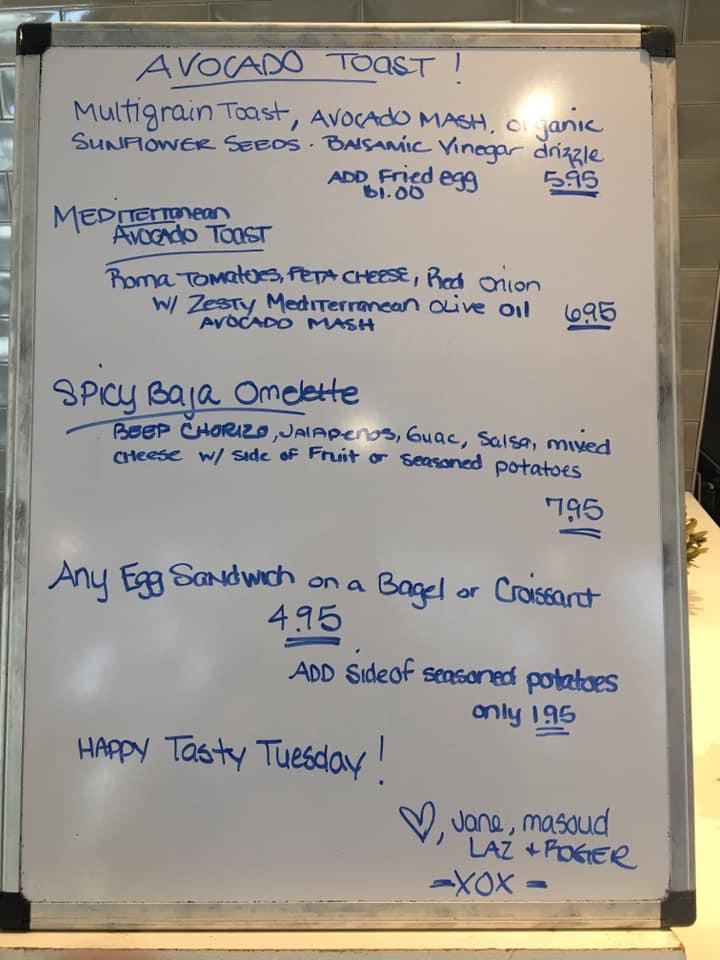 AVOCADO TOAST!
Multigrain Toast, AVOCADO MASH, organic
SUNFLOWER SEEDS. BALSAMIC Vinegar drizzle
ADD Fried egg 5.95
$1.00
MEDITERRanean
AVOCADO TOAST
Roma TOMATOES, FETA CHEESE, Red Onion
W/ Zesty MEDITERRanean OLIVE OIL 6.95
AVOCADO MASH
SPICY Baja Omelette
BEEF CHORIZO, JALAPENOS, Guac, Salsa, mixed
CHEESE w/ side of Fruit or seasoned potatoes
7.95
Any Egg Sandwich on a Bagel or Croissant
4.95
ADD Side of seasoned potatoes
only 1.95
HAPPY Tasty Tuesday!
♡, Jane, masoud
LAZ + ROGER
-XOX-